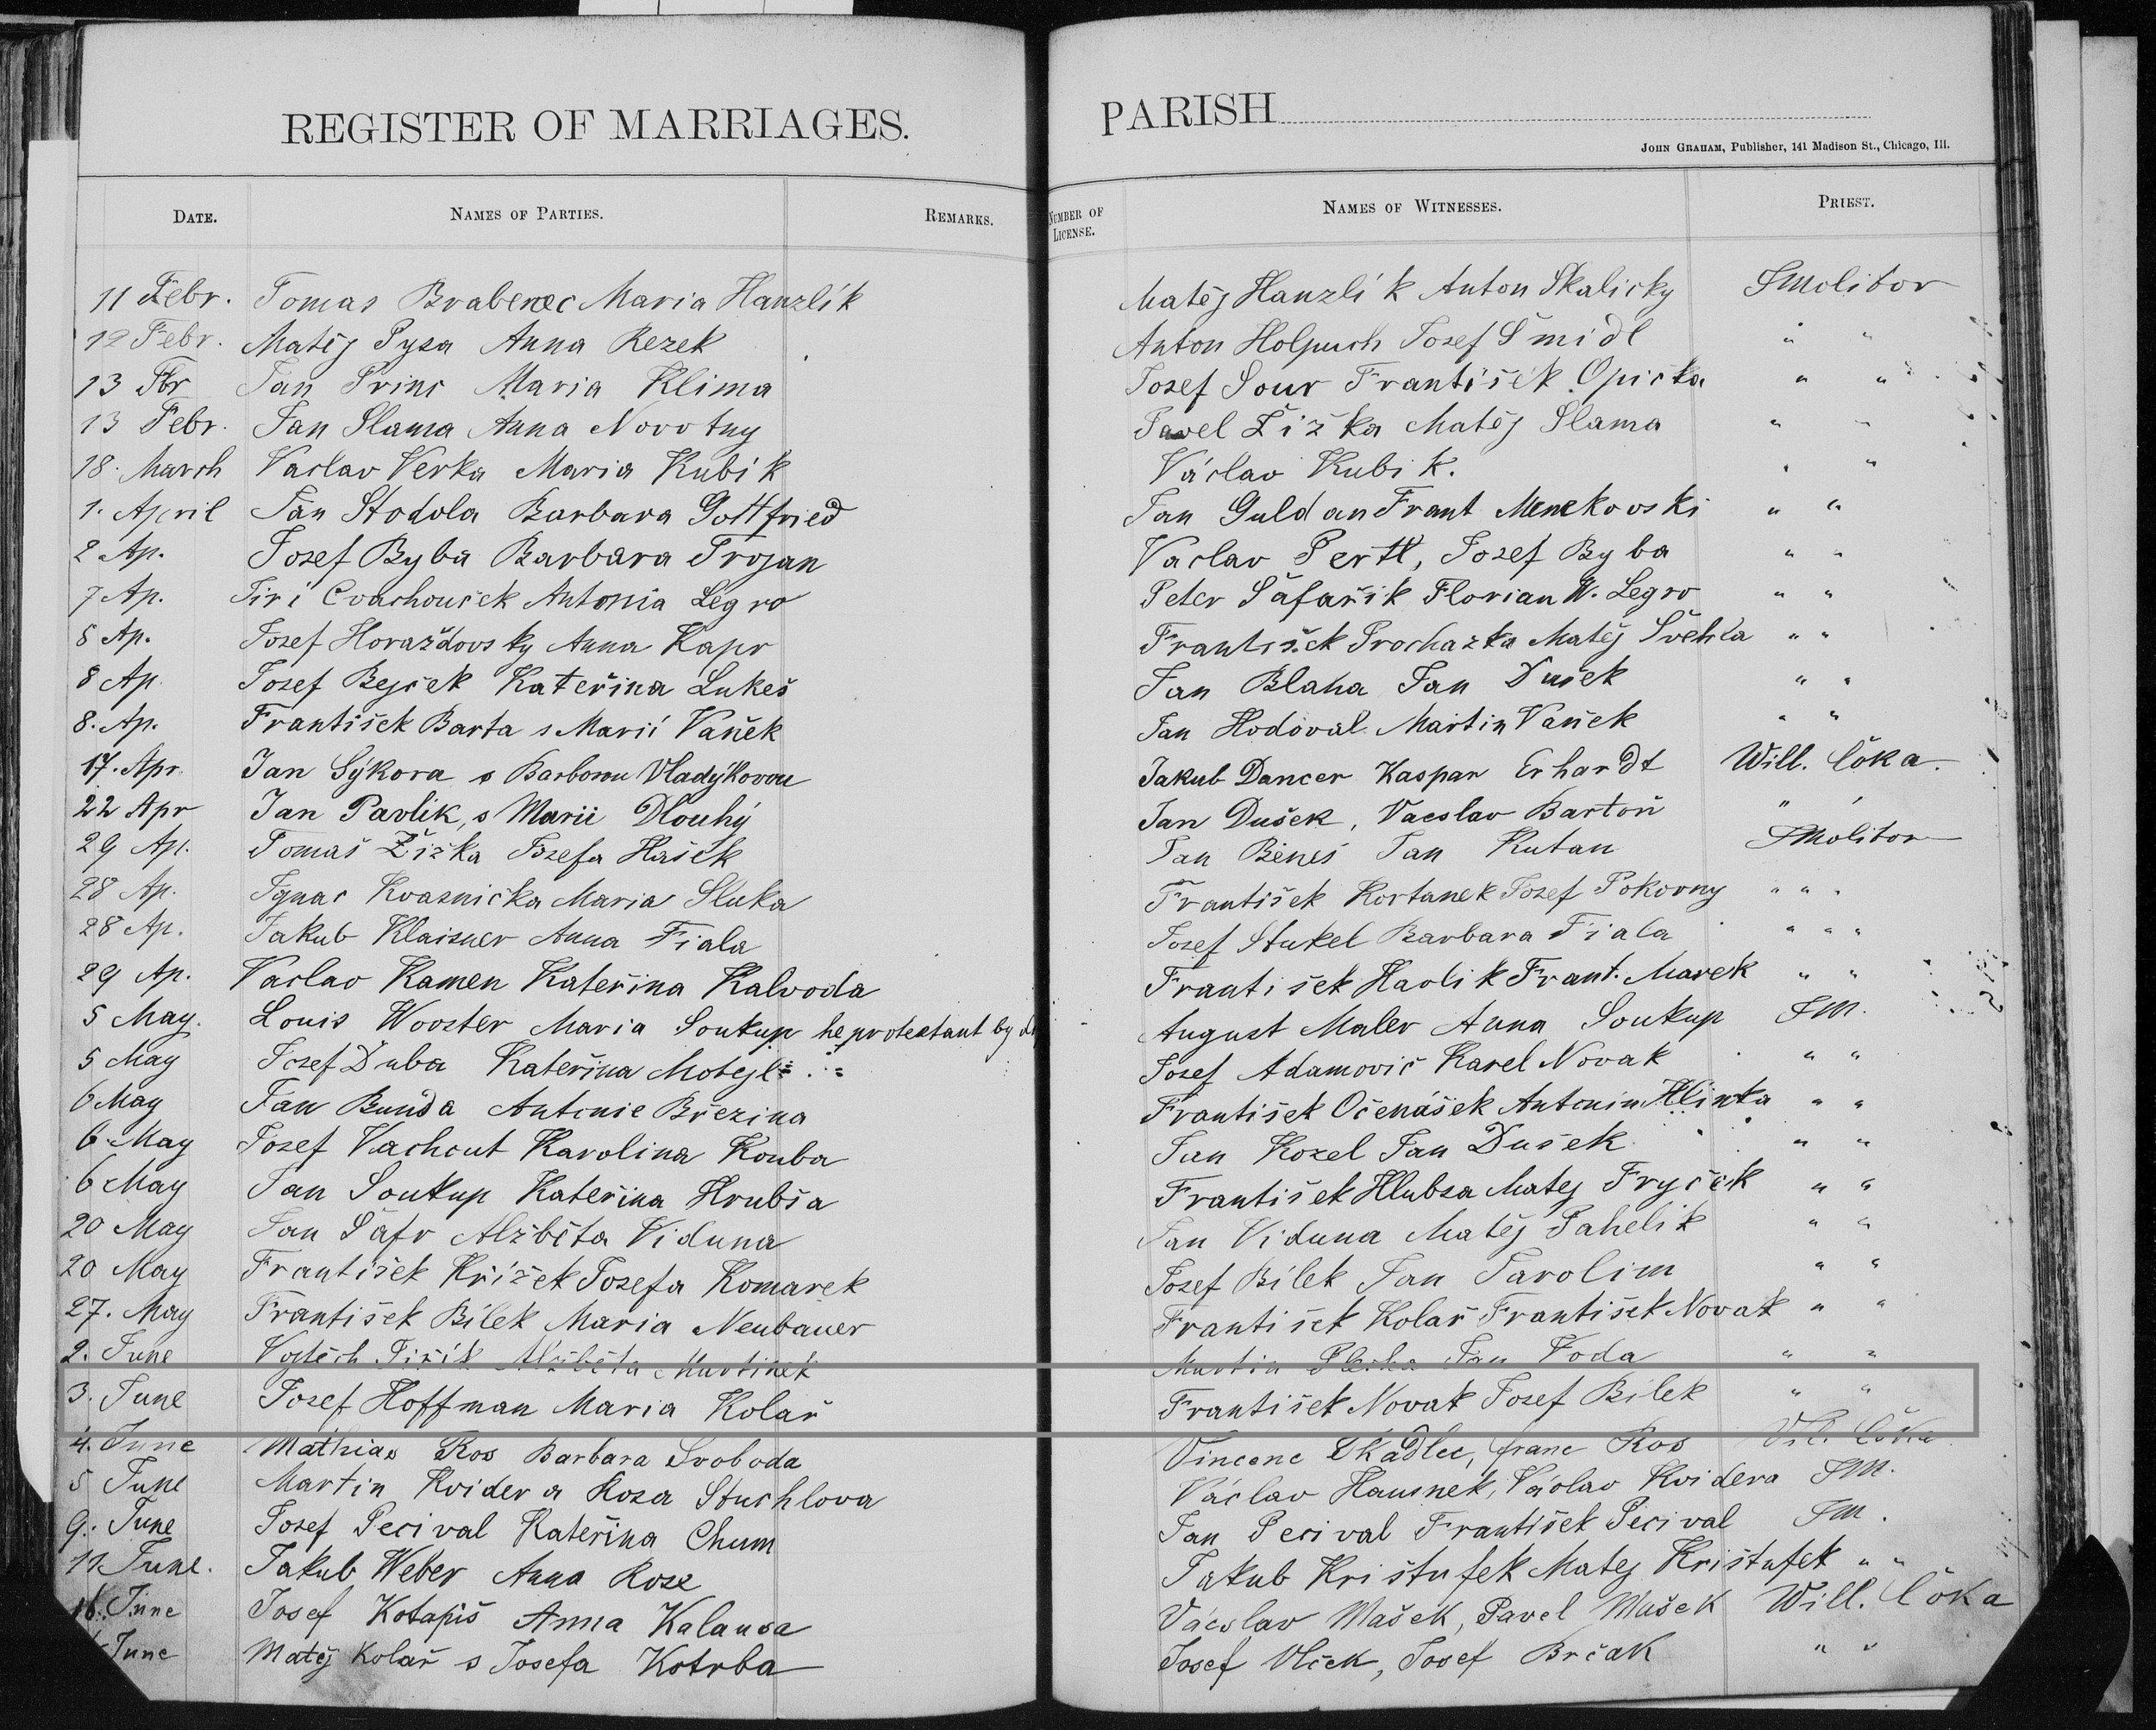 REGISTER OF MARRIAGES.
DATE. NAMES OF PARTIES. REMARKS.
11 Febr. Tomas Brabenec Maria Hanzlík
12 Febr. Matěj Pysa Anna Rezek
13 Fbr Jan Princ Maria Klima
13 Febr. Jan Slama Anna Novotny
18. March Vaclav Verka Maria Kubík
1. April Jan Stodola Barbara Gottfried
2 Ap. Josef Ryba Barbara Trojan
7 Ap. Jiri Cvachouček Antonia Legro
8 Ap. Josef Horaždovsky Anna Kapr
8 Ap. Josef Bejček Kateřina Lukeš
8. Ap. František Barta s Marií Vaněk
17. Apr. Jan Sýkora s Barborou Vladýkovou
22 Apr Jan Pavlik, s Marii Dlouhý
29 Ap. Tomaš Žižka Josefa Hašek
28 Ap. Ignac Kvasnička Maria Sluka
28 Ap. Jakub Klaisner Anna Fiala
29 Ap. Vaclav Kamen Kateřina Kalvoda
5 May. Louis Wooster Maria Soukup he protestant by
5 May Josef Duba Kateřina Motejl
6 May Jan Bunda Antonie Březina
6 May Josef Vachout Karolina Kouba
6 May Jan Soukup Kateřina Hrubša
20 May Jan Šafr Alžběta Viduna
20 May František Křížek Josefa Komarek
27. May František Bílek Maria Neubauer
2. June Vojtěch Jiřík Alžběta Martinek
3. June Josef Hoffman Maria Kolař
4. June Mathias Ros Barbara Svoboda
5 June Martin Kvidera Rosa Stuchlova
9. June Josef Pecival Kateřina Chum
11 June. Jakub Weber Anna Rose
16. June Josef Kotapiš Anna Kalausa
June Matěj Kolař s Josefa Kotrba
PARISH
JOHN GRAHAM, Publisher, 141 Madison St., Chicago, Ill.
NUMBER OF LICENSE. NAMES OF WITNESSES. PRIEST.
Matěj Hanzlík Anton Skalicky JMolitor
Anton Holpuch Josef Šmidl " "
Josef Sour František Opička " "
Pavel Žižka Matěj Slama " "
Václav Kubik. " "
Jan Guldan Frant Menekovski " "
Vaclav Pertl, Josef Ryba " "
Peter Šafařik Florian W. Legro " "
František Prochazka Matěj Švehla " "
Jan Blaha Jan Dušek " "
Jan Hodoval Martin Vaněk " "
Jakub Dancer Kaspar Erhardt Will. Čoka.
Jan Dušek, Vácslav Bartoň " "
Jan Beneš Jan Kutan JMolitor
František Kortanek Josef Pokorny " " "
Josef Stukel Barbara Fiala " " "
František Havlik Frant. Marek " "
August Maler Anna Soukup JM.
Josef Adamovič Karel Novak " "
František Očenášek Antonin Hlinka " "
Jan Kozel Jan Dušek " "
František Hlubsa Matej Fryček " "
Jan Viduna Matěj Pahelik " "
Josef Bílek Jan Jarolim " "
František Kolař František Novak " "
Martin Jan Voda " "
František Novak Josef Bílek " "
Vincenc Skadlec, franc Ros Vil. Čoka
Václav Hausnek, Václav Kvidera JM.
Jan Pecival František Pecival JM.
Jakub Krištufek Matej Krištufek " "
Vácslav Mašek, Pavel Mašek Will. Čoka
Josef Vlček, Josef Brčak " "